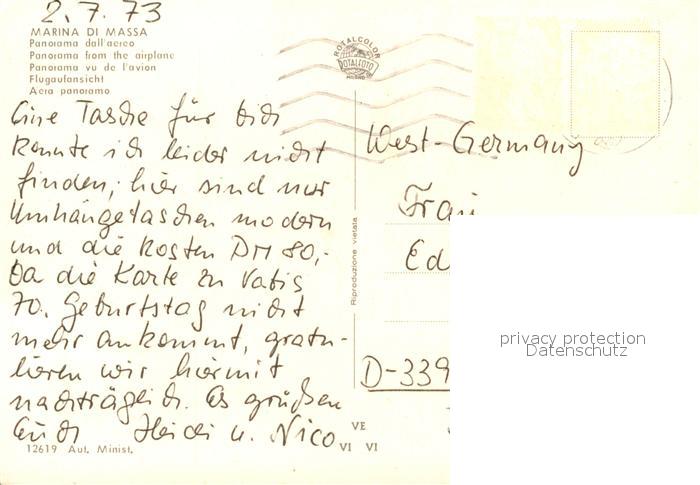 2.7.73
MARINA DI MASSA
Panorama dall'aereo
Panorama from the airplane
Panorama vu de l'avion
Flugaufansicht
Aera panoramo
ROTALCOLOR
ROTALFOTO
MILANO
Eine Tasche für Edith
konnte ich leider nicht
finden, hier sind nur
Umhängetaschen modern
und die kosten DM 80,-
Da die Karte zu Vatis
70. Geburtstag nicht
mehr ankommt, gratu-
lieren wir hiermit
nachträglich. Es grüßen
Euch Heidi u. Nico
12619 Aut. Minist.
Riproduzione vietata
West-Germany
Frau
Ed
D-339
VE
VI VI
privacy protection
Datenschutz